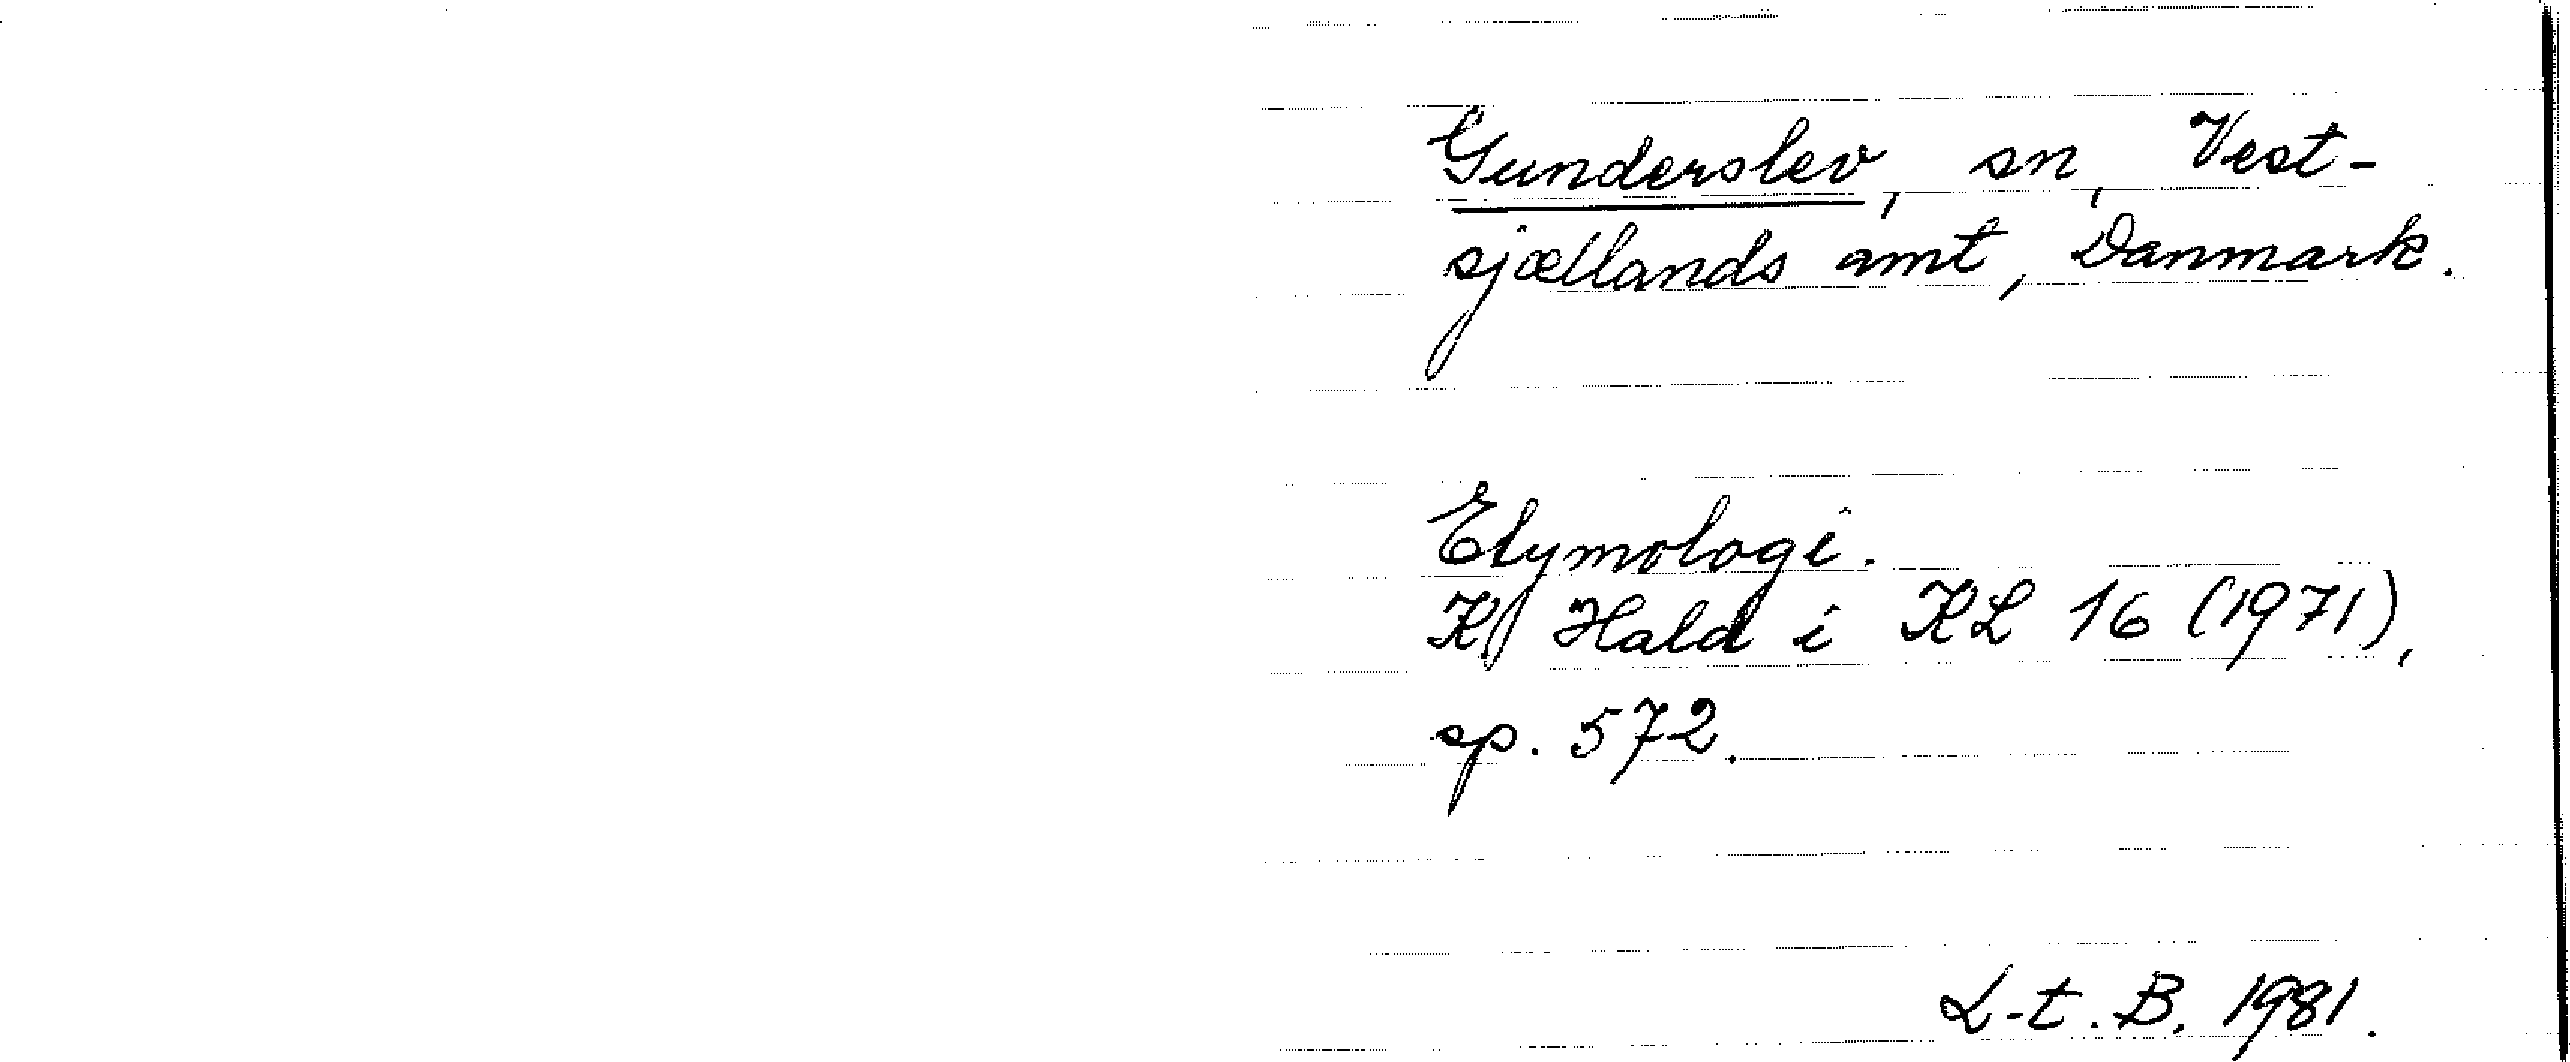 Gunderslev, sn, Vest-
sjællands amt, Danmark.
Etymologi.
K. Hald i KL 16 (1971),
sp. 572.
L-t. B. 1981.